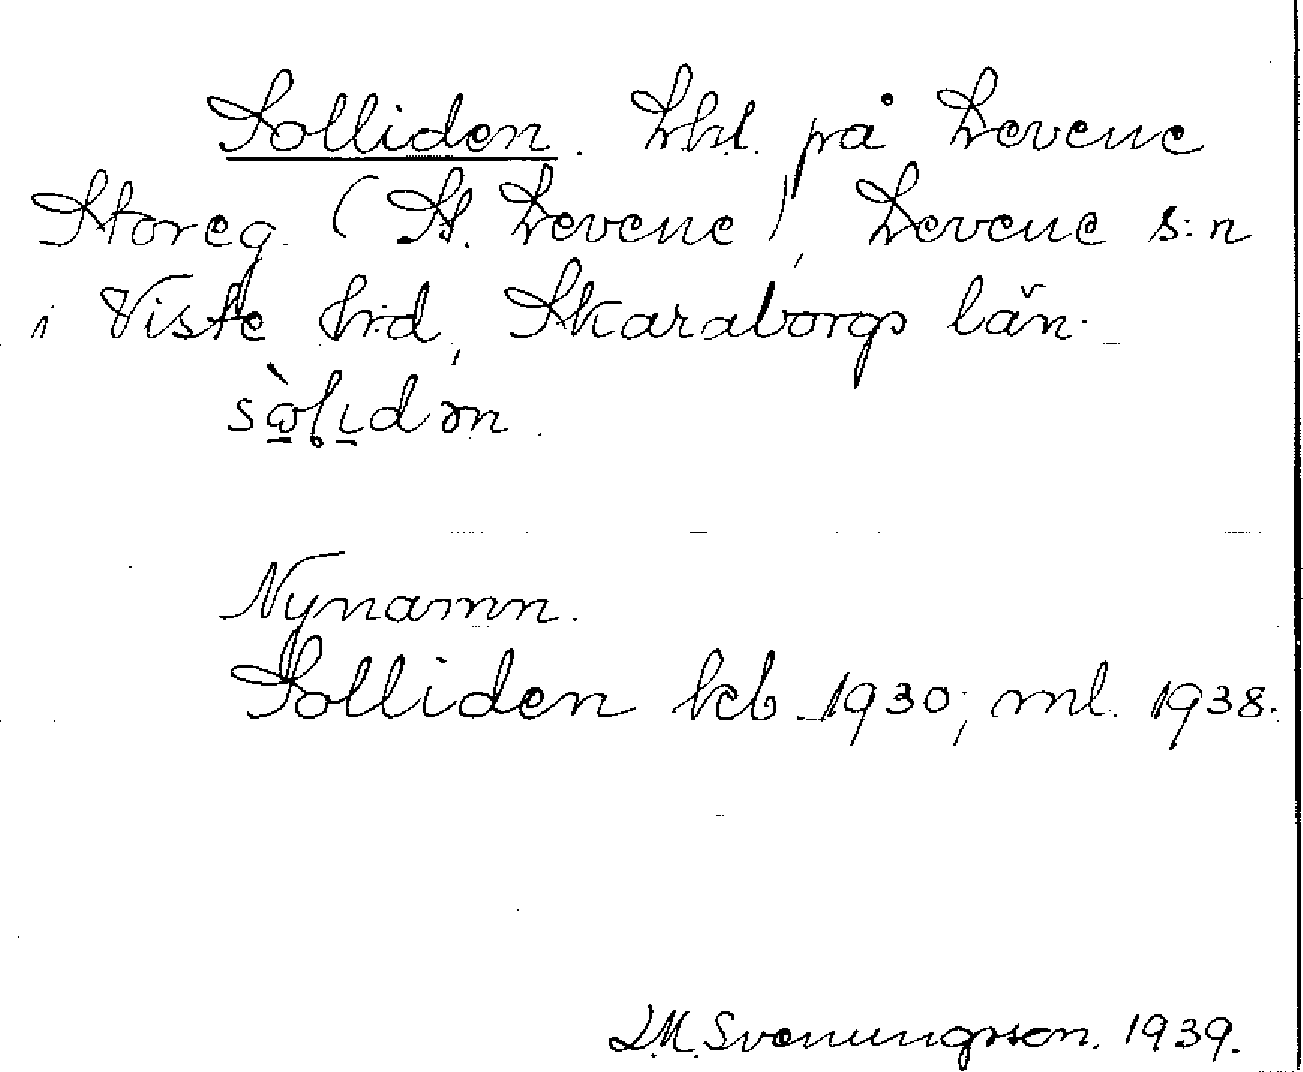 Solliden. Lht. på Levene
Storeg. (St. Levene), Levene s:n
i Viste hd, Skaraborgs län.
sòlidən.
Nynamn.
Solliden kcb 1930; ml. 1938.
L.M. Svenungsson. 1939.